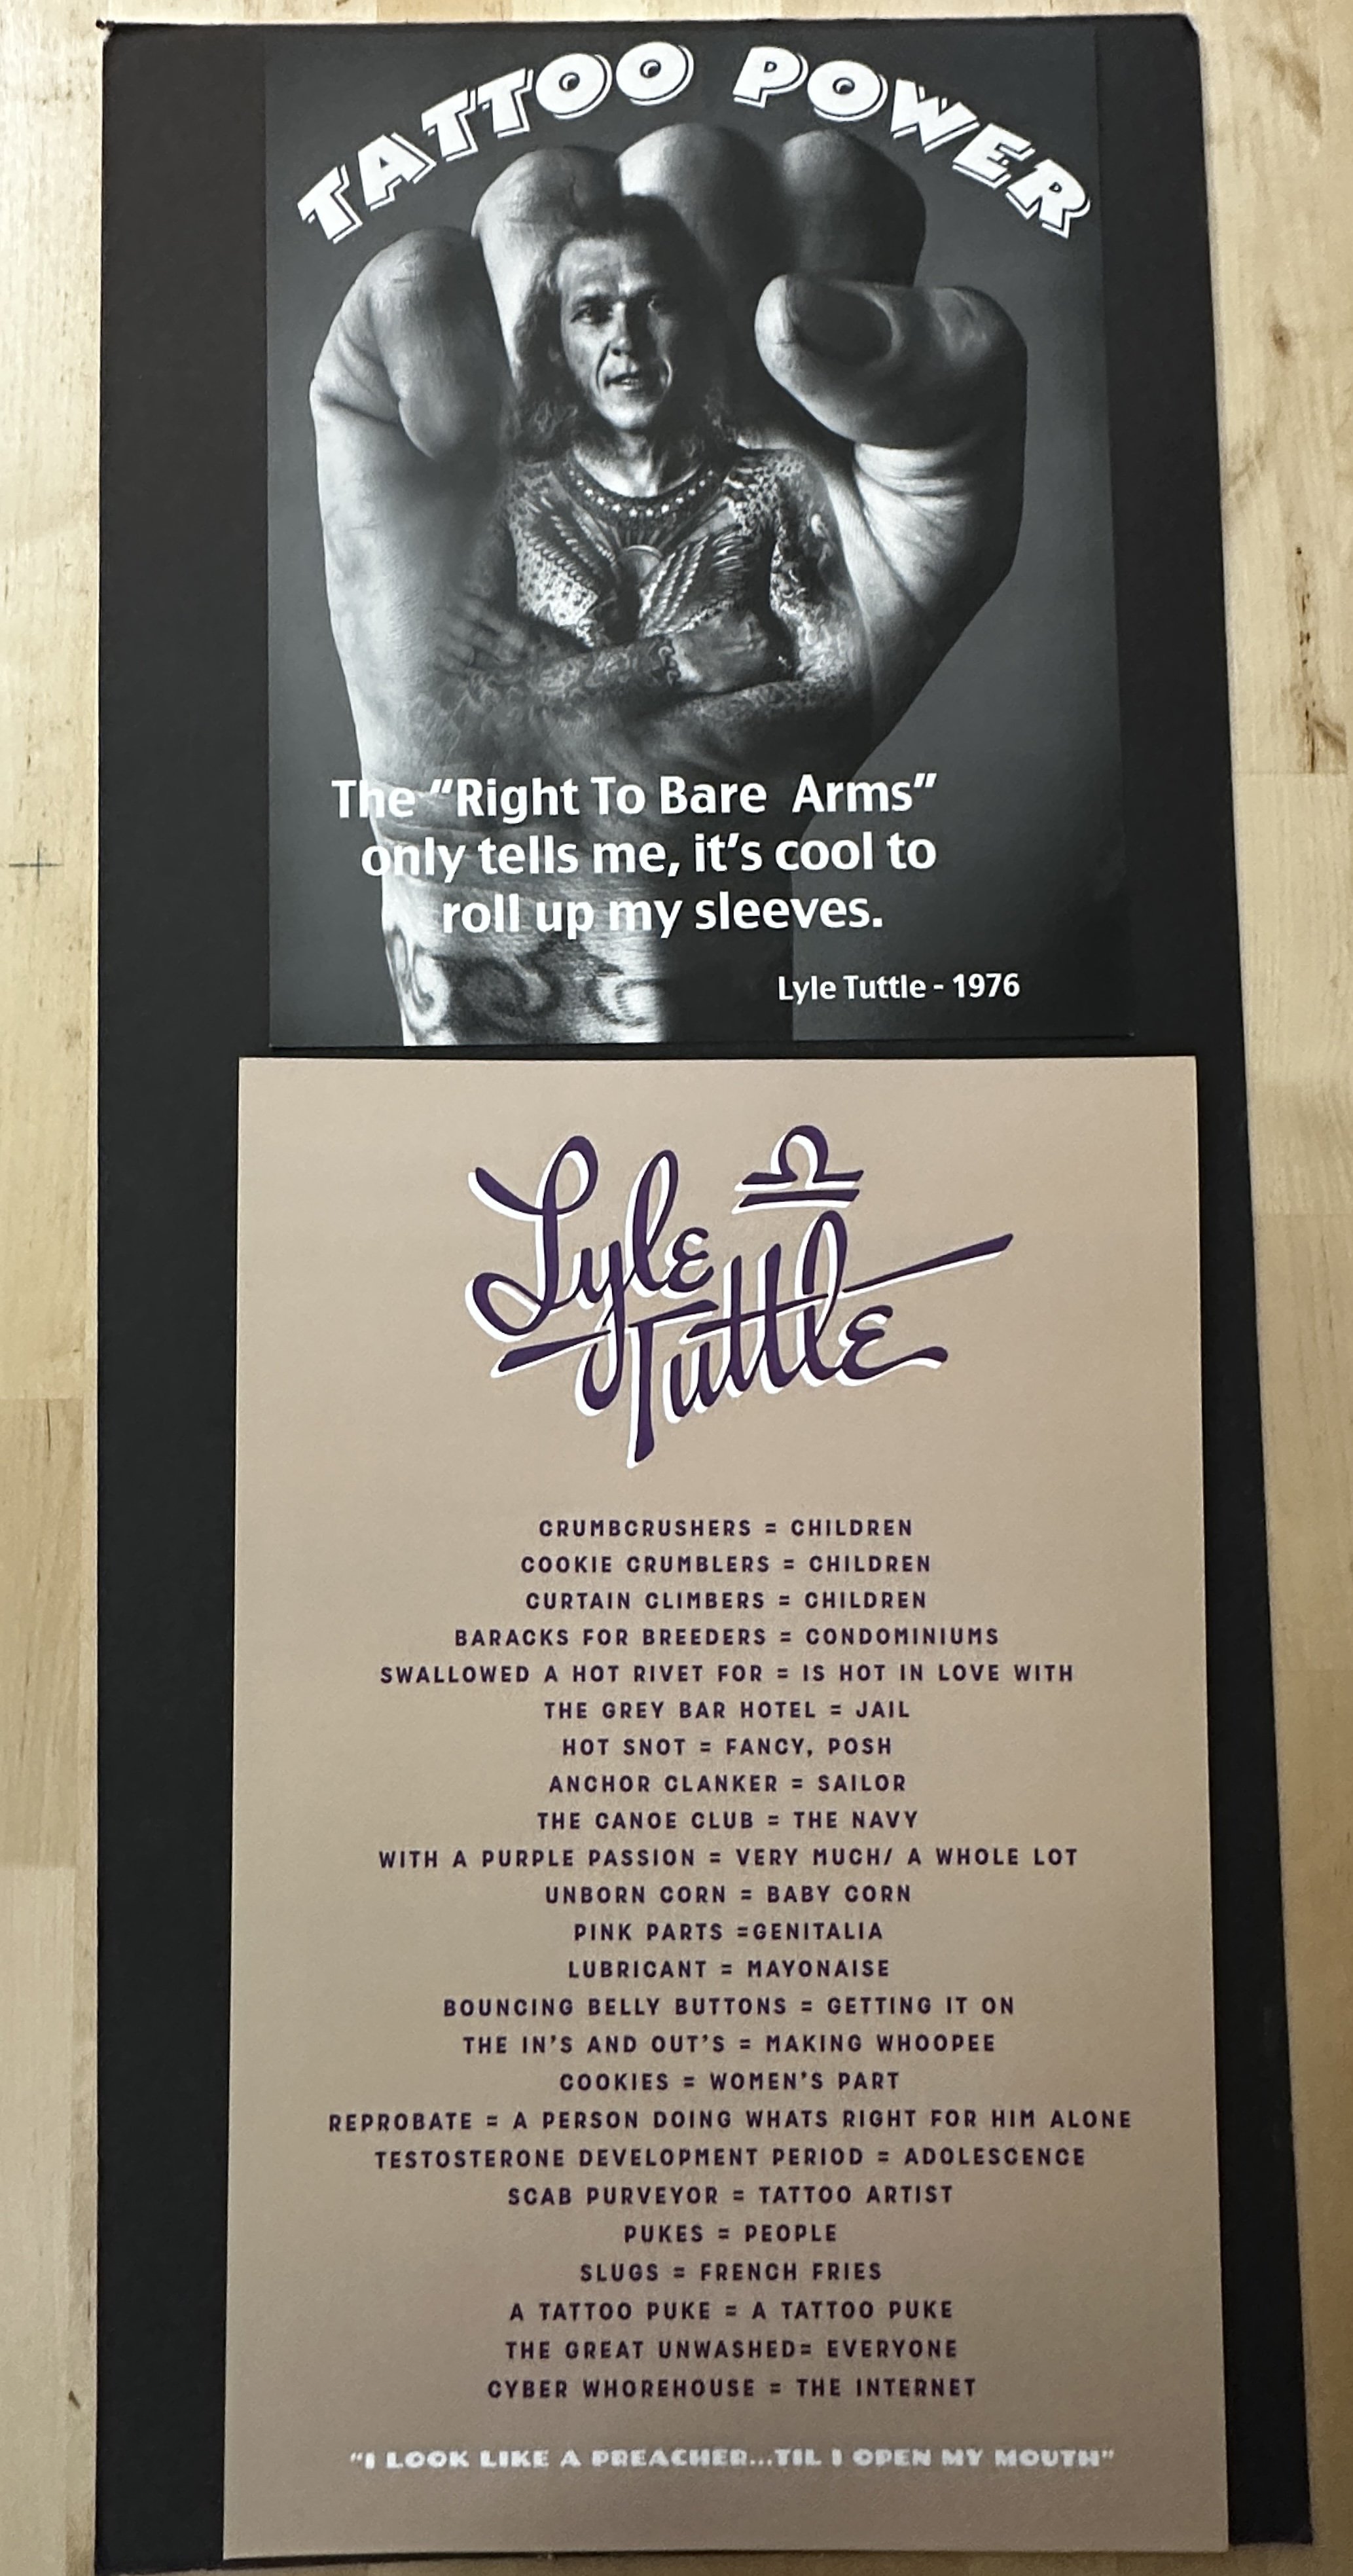 TATTOO POWER
The "Right To Bare Arms"
only tells me, it's cool to
roll up my sleeves.
Lyle Tuttle - 1976
Lyle
Tuttle
CRUMBCRUSHERS = CHILDREN
COOKIE CRUMBLERS = CHILDREN
CURTAIN CLIMBERS = CHILDREN
BARACKS FOR BREEDERS = CONDOMINIUMS
SWALLOWED A HOT RIVET FOR = IS HOT IN LOVE WITH
THE GREY BAR HOTEL = JAIL
HOT SNOT = FANCY, POSH
ANCHOR CLANKER = SAILOR
THE CANOE CLUB = THE NAVY
WITH A PURPLE PASSION = VERY MUCH/ A WHOLE LOT
UNBORN CORN = BABY CORN
PINK PARTS =GENITALIA
LUBRICANT = MAYONAISE
BOUNCING BELLY BUTTONS = GETTING IT ON
THE IN'S AND OUT'S = MAKING WHOOPEE
COOKIES = WOMEN'S PART
REPROBATE = A PERSON DOING WHATS RIGHT FOR HIM ALONE
TESTOSTERONE DEVELOPMENT PERIOD = ADOLESCENCE
SCAB PURVEYOR = TATTOO ARTIST
PUKES = PEOPLE
SLUGS = FRENCH FRIES
A TATTOO PUKE = A TATTOO PUKE
THE GREAT UNWASHED= EVERYONE
CYBER WHOREHOUSE = THE INTERNET
"I LOOK LIKE A PREACHER...TIL I OPEN MY MOUTH"